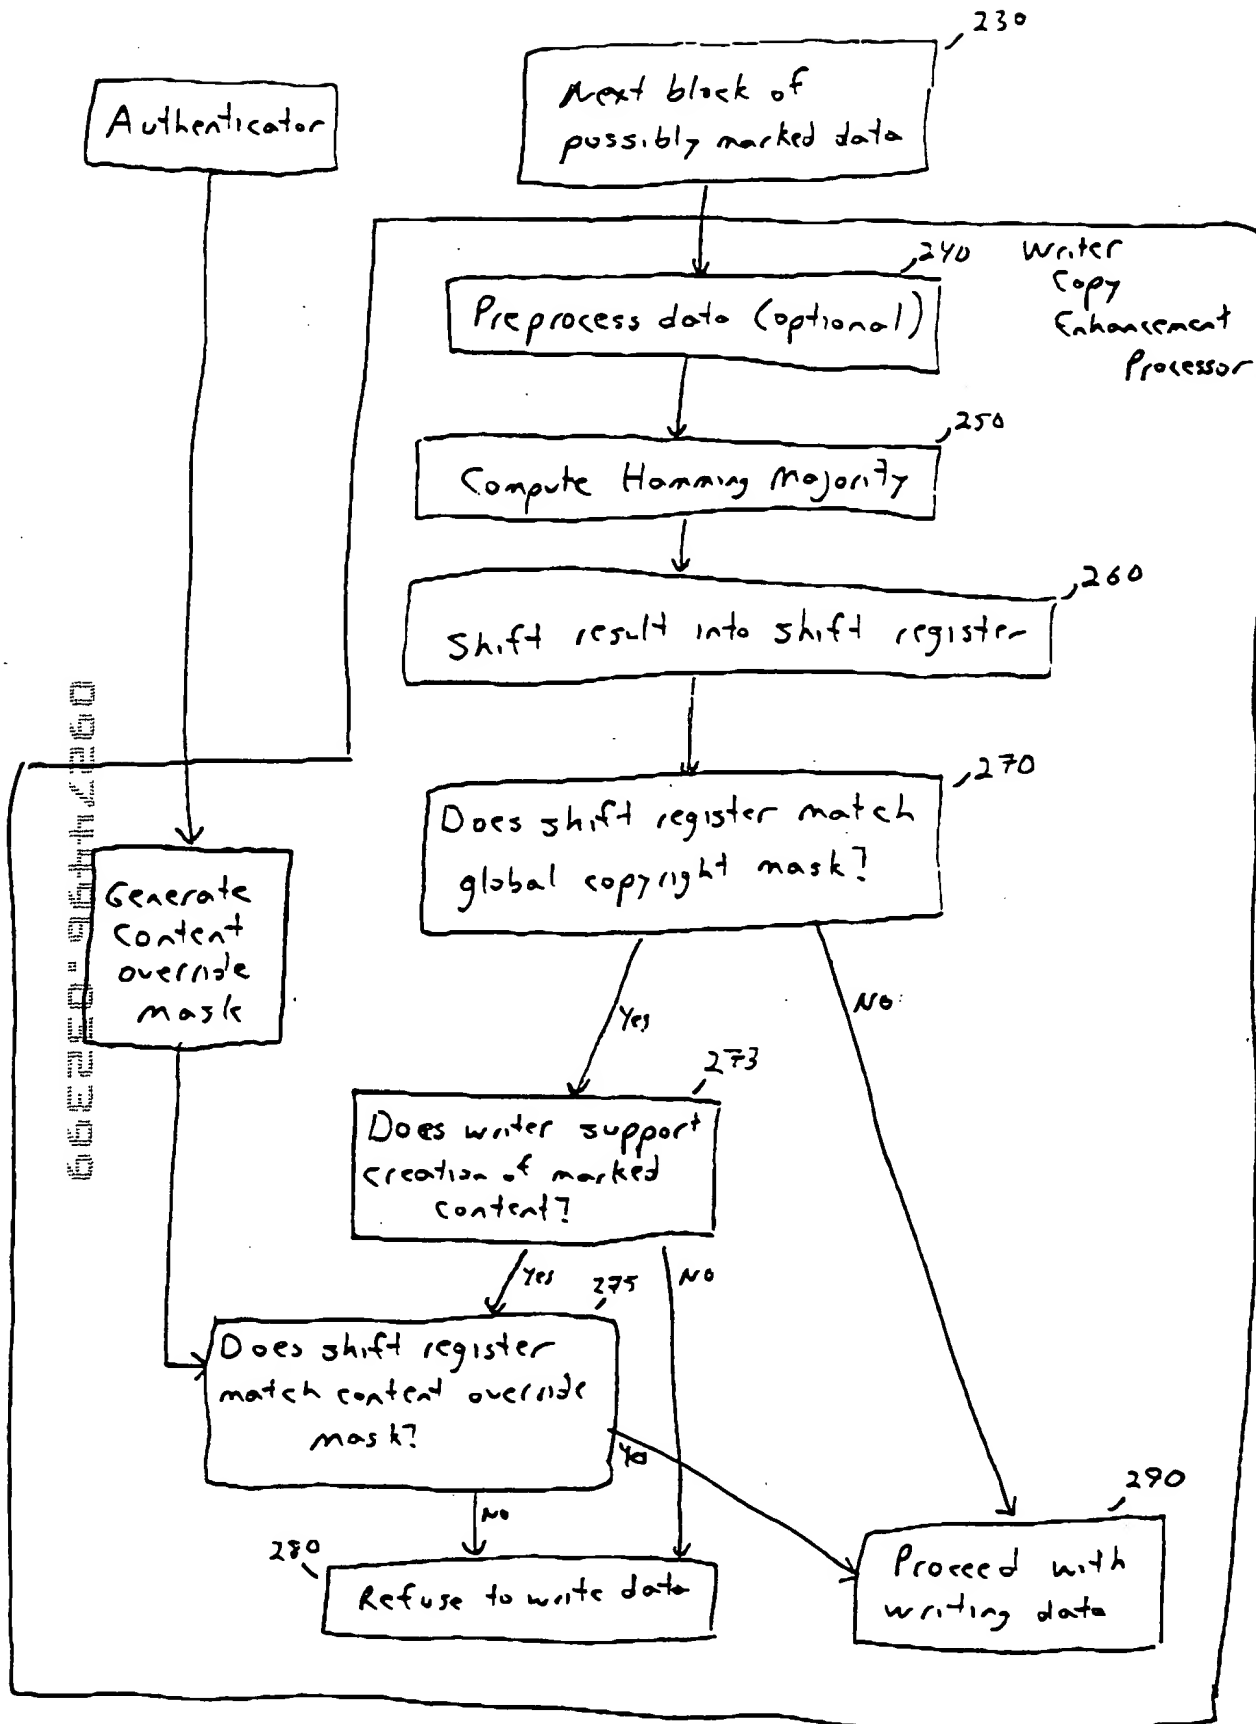 230
Next block of
possibly marked data
Authenticator
240
Writer
Copy
Enhancement
Processor
Preprocess data (optional)
250
Compute Hamming Majority
260
Shift result into shift register
270
Does shift register match
global copyright mask?
Generate
Content
override
mask
Yes
NO
273
Does writer support
creation of marked
content?
Yes
NO
275
Does shift register
match content override
mask?
NO
280
Refuse to write data
290
Proceed with
writing data